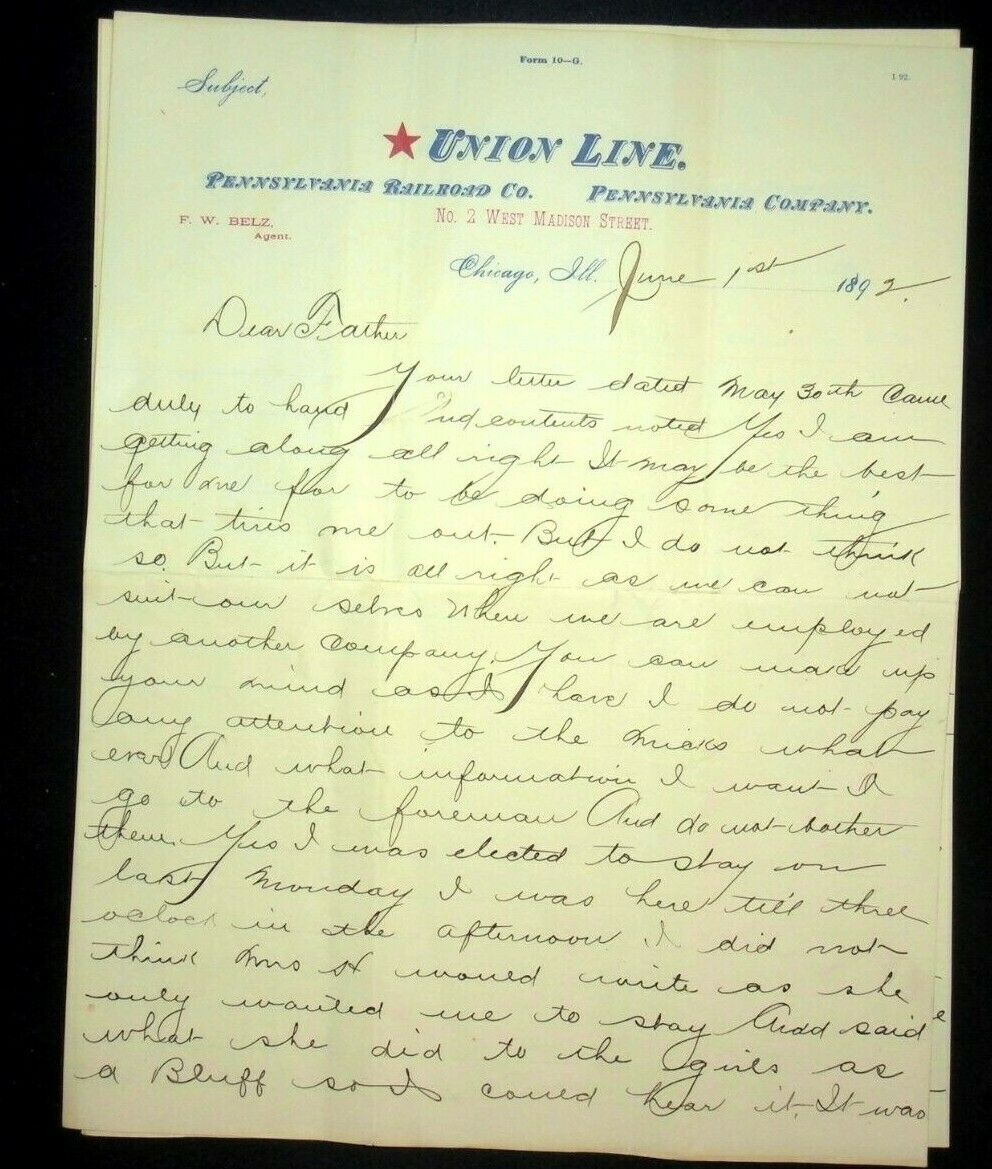 Form 10—G.
1 92.
Subject,
UNION LINE.
PENNSYLVANIA RAILROAD CO. PENNSYLVANIA COMPANY.
F. W. BELZ,
Agent.
No. 2 WEST MADISON STREET.
Chicago, Ill. June 1st 1892.
Dear Father
Your letter dated May 30th Came
duly to hand And contents noted Yes I am
getting along all right It may be the best
for me for to be doing some thing
that tires me out. But I do not think
so. But it is all right as we can not
suit our selves When we are employed
by another Company. You can make up
your mind as I have I do not pay
any attention to the micks what
ever And what information I want I
go to the foreman And do not bother
them. Yes I was elected to stay on
last Monday I was here till three
oclock in the afternoon I did not
think Mrs H would write as she
only wanted me to stay And said
what she did to the girls as
a Bluff so I could hear it. It was
e